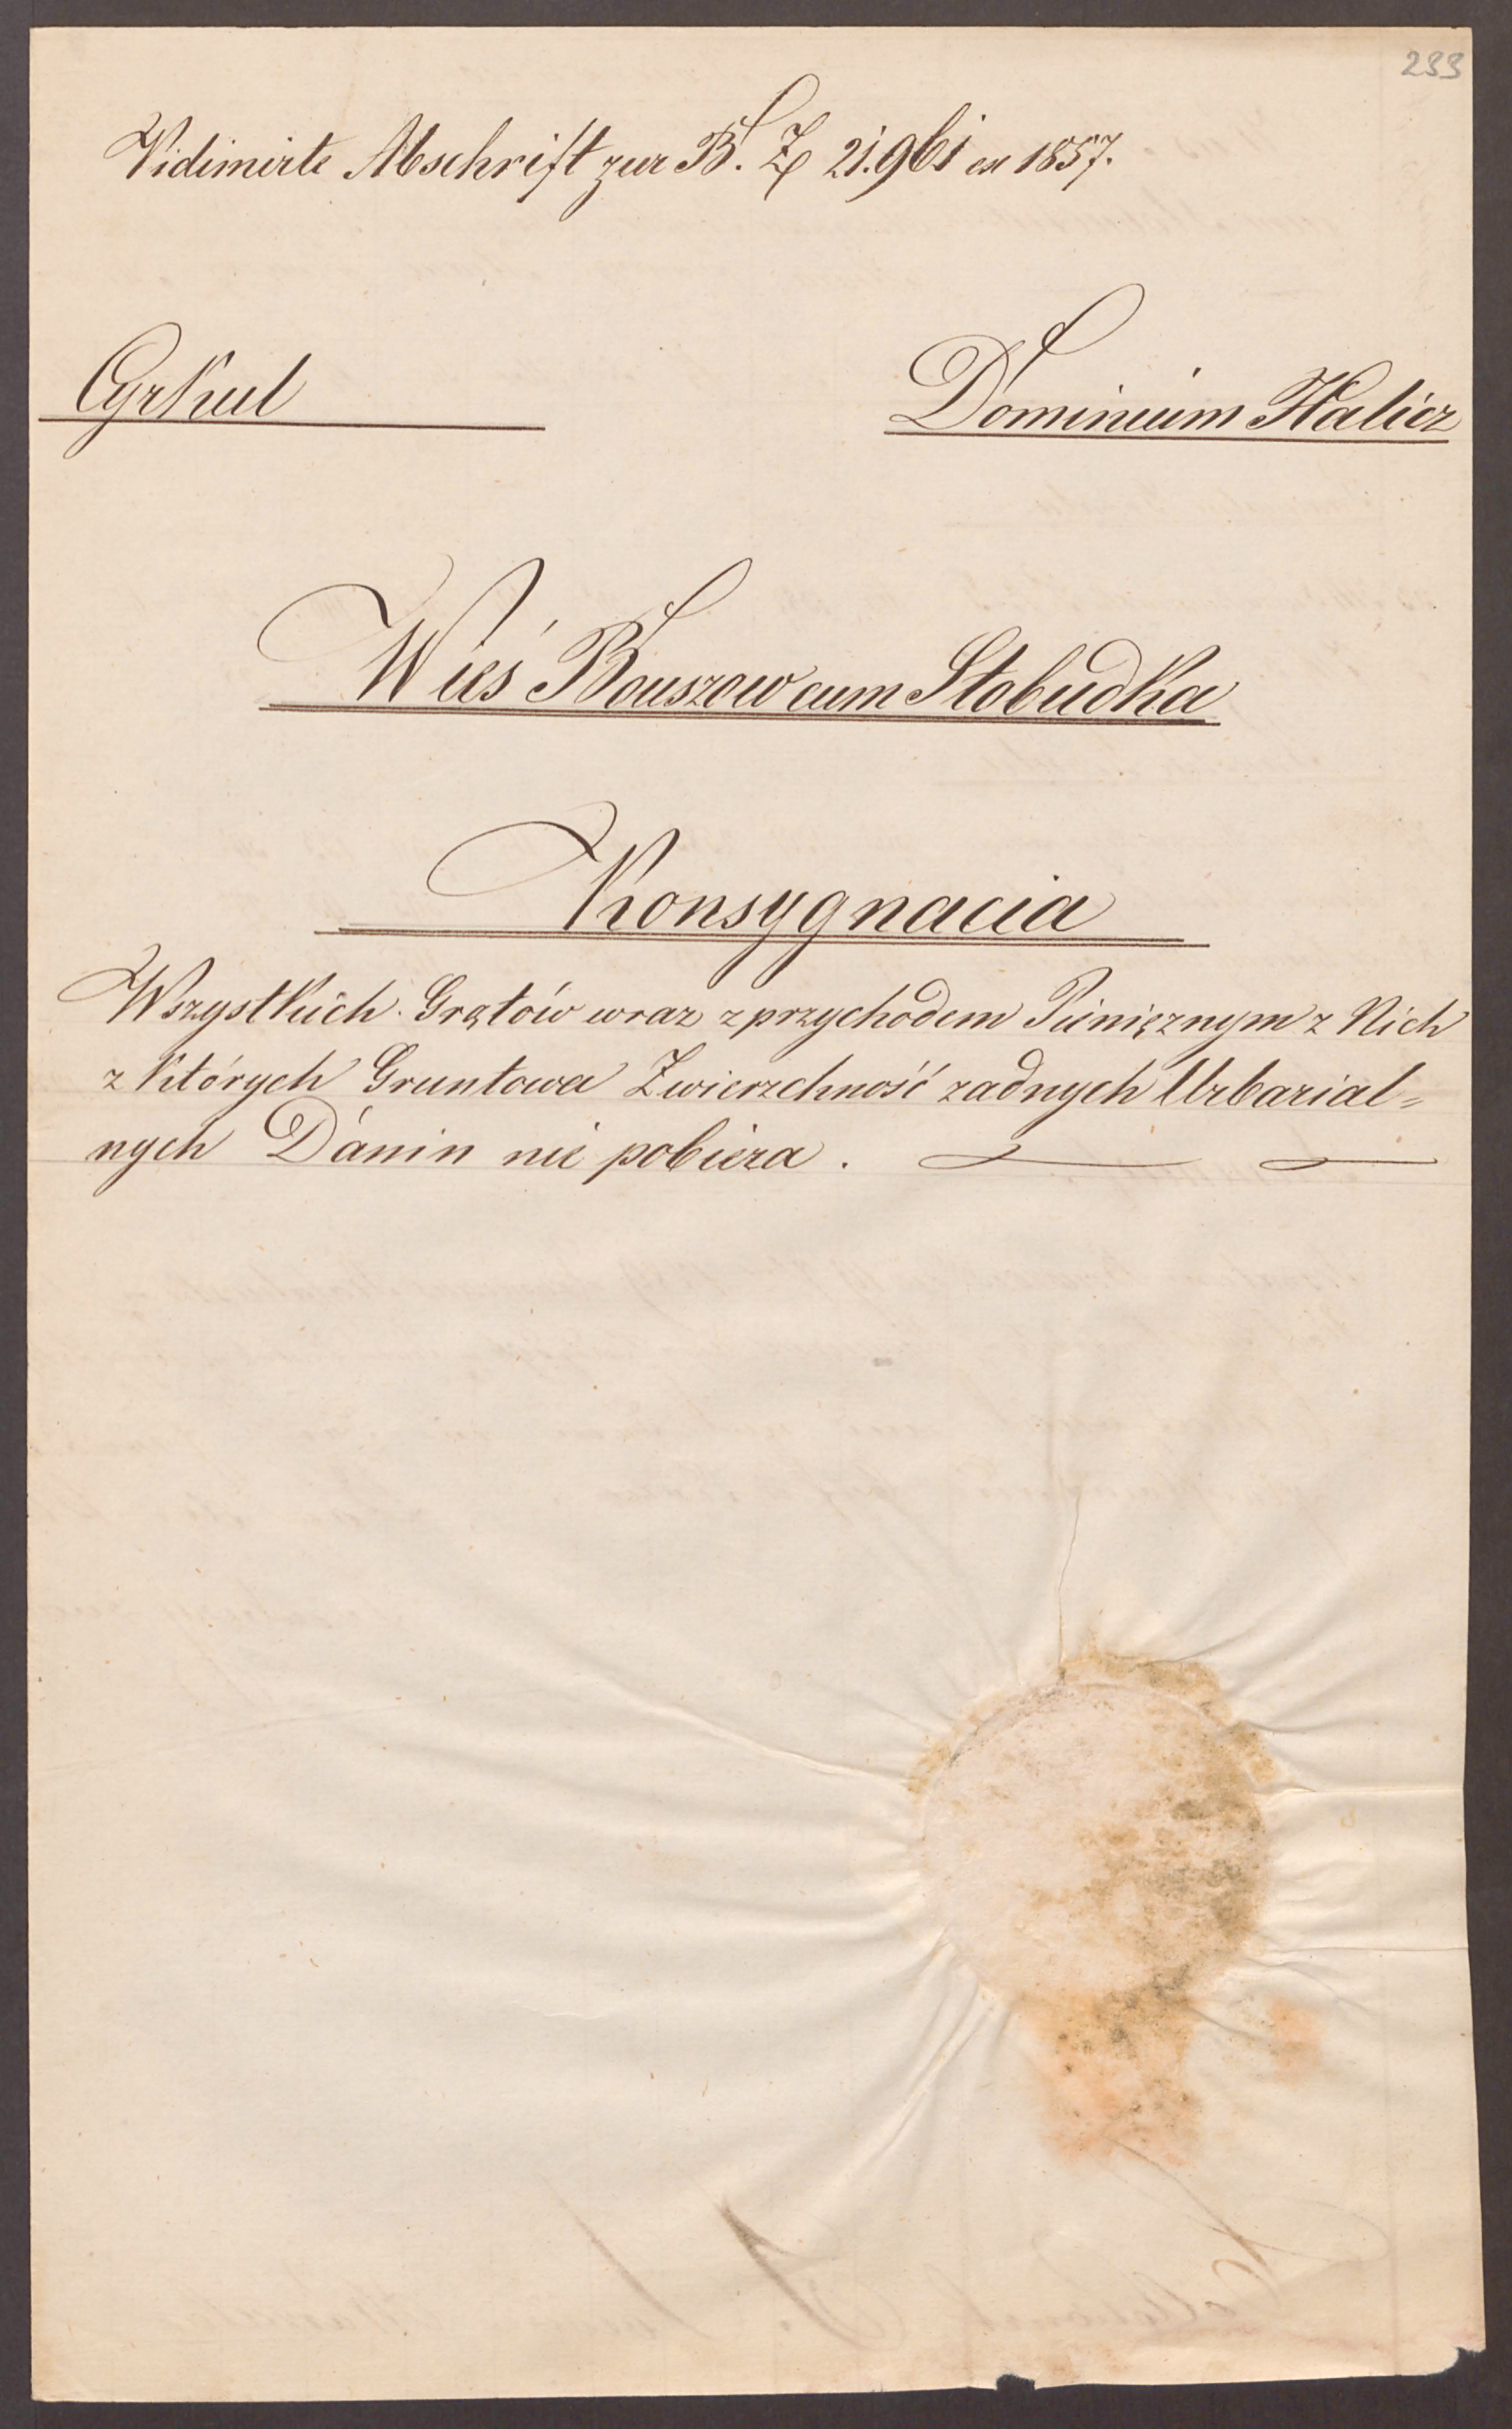 233
Vidimirte Abschrift zur B. Z 21.961 ex 1857.
Cyrkul
Dominium Halicz
Wieś Bouszow cum Slobudka
Konsygnacia
Wszystkich Grątów wraz z przychodem Pieniężnym z Nich
z Których Gruntowa Zwierzchność zadnych Urbarial=
nych Danin nie pobiera.